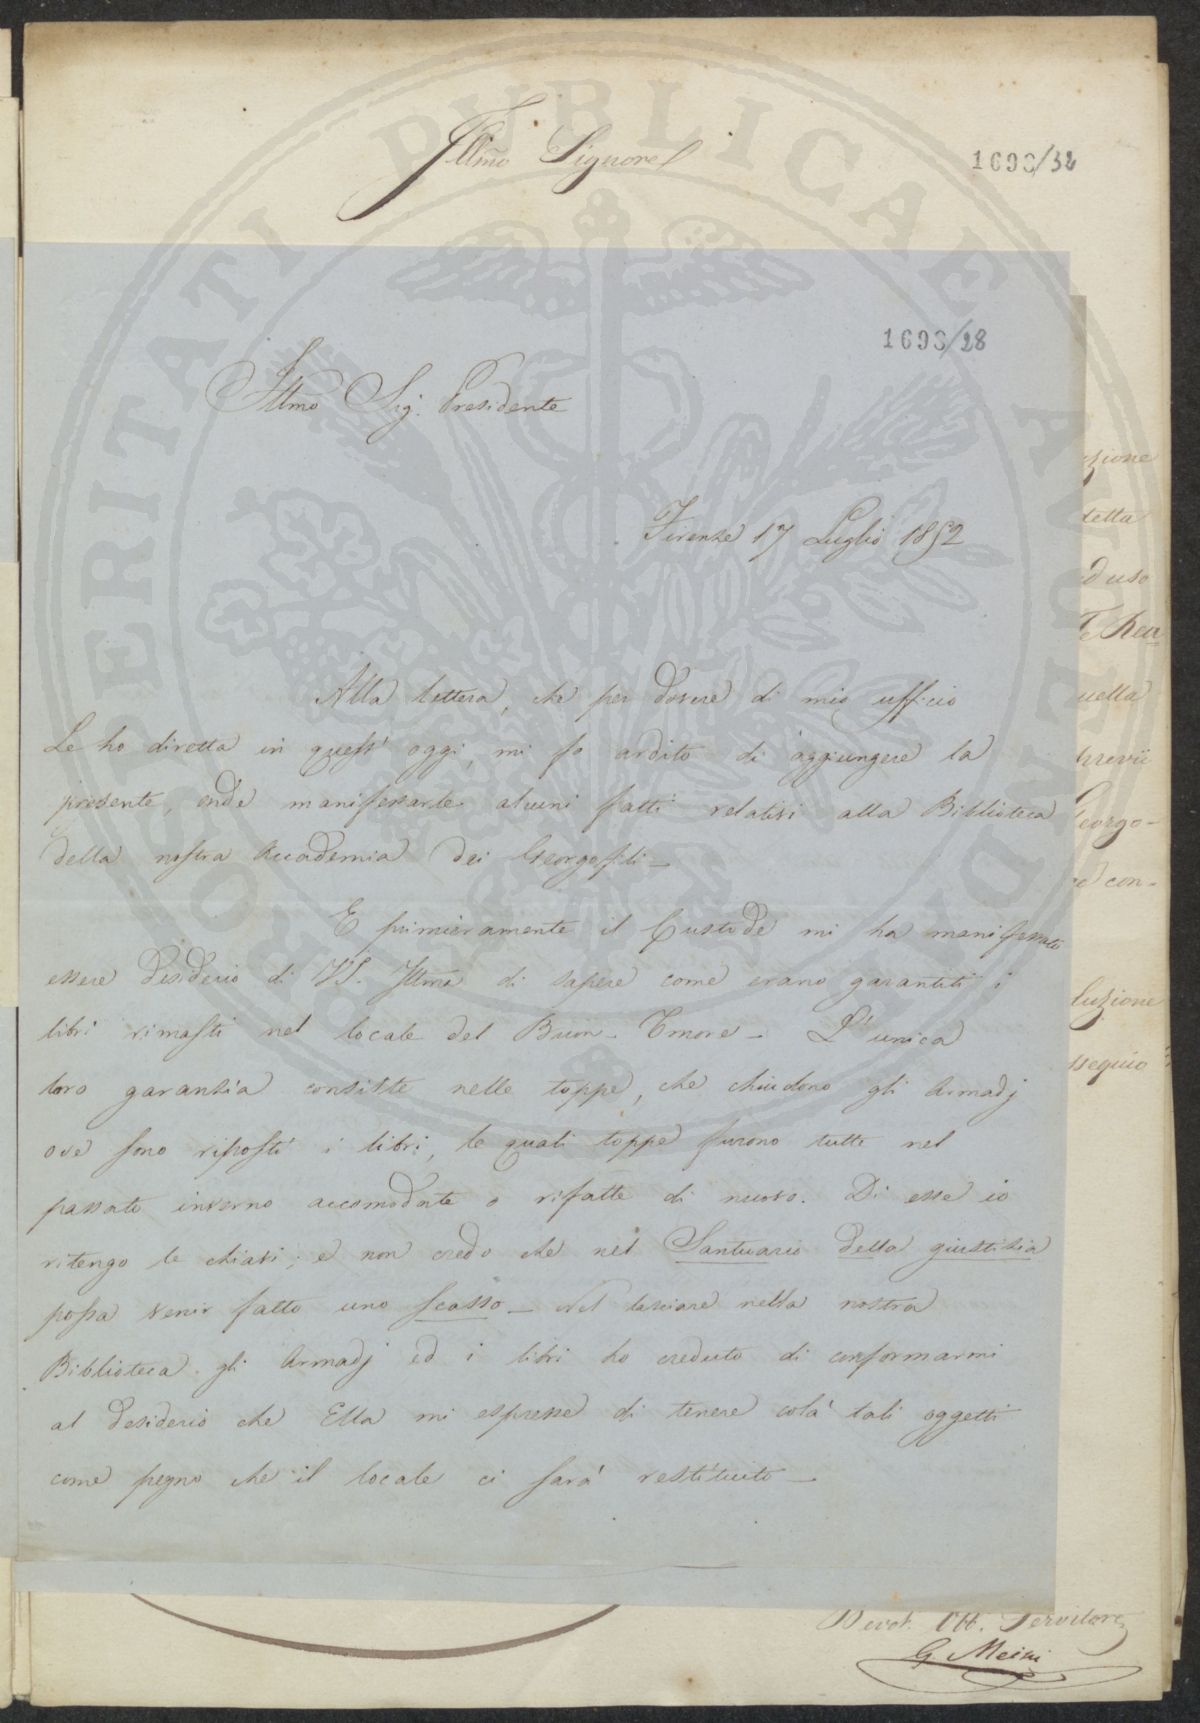 Illmo Signore
1698/32
1698/28
Illmo Sig. Presidente
Firenze 17 Luglio 1852
Alla lettera, che per dovere di mio ufficio
Le ho diretta in quest' oggi, mi fo ardito di aggiungere la
presente, onde manifestarle alcuni fatti relativi alla Biblioteca
della nostra Accademia dei Georgofili —
E primieramente il Custode mi ha manifestato
essere desiderio di VS. Illma di sapere come erano garantiti i
libri rimasti nel locale del Buon-Umore — L'unica
loro garanzia consiste nelle toppe, che chiudono gli Armadj
ove sono riposti i libri, le quali toppe furono tutte nel
passato inverno accomodate o rifatte di nuovo. Di esse io
ritengo le chiavi; e non credo che nel Santuario della giustizia
possa venir fatto uno scasso — Nel lasciare nella nostra
Biblioteca gli Armadj ed i libri ho creduto di conformarmi
al desiderio che Ella mi espresse di tenere colà tali oggetti
come pegno che il locale ci sarà restituito —
uzione
detta
ad uso
uella
Georgo-
con-
luzione
ssequio
Devot. Obb. Servitore
PROSPERITATI PUBLICAE AUGENDAE